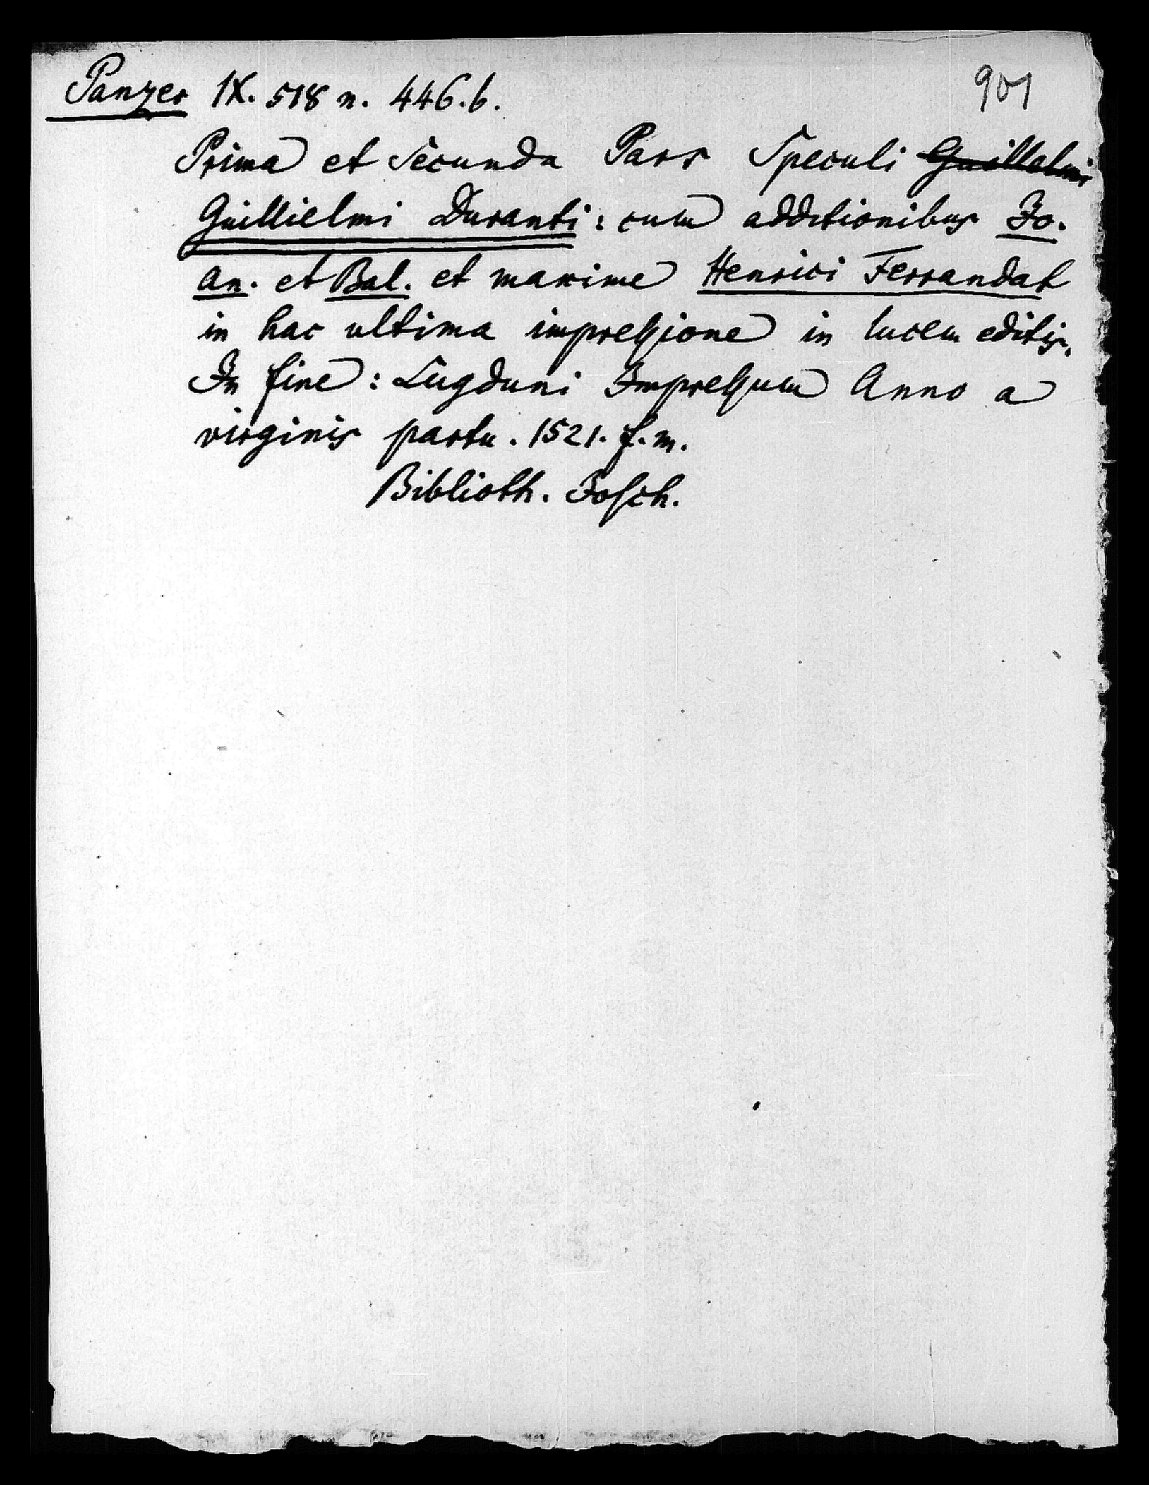 Panzer IX. 518 n. 446.b.
901
Prima et Secunda Pars Speculi Guillelmi
Guillielmi Duranti: cum additionibus Jo.
An. et Bal. et maxime Henrici Ferrandat
in hac ultima impressione in lucem editis.
In fine: Lugduni Impressum Anno a
virginis partu. 1521. f. m.
Biblioth. Bosch.